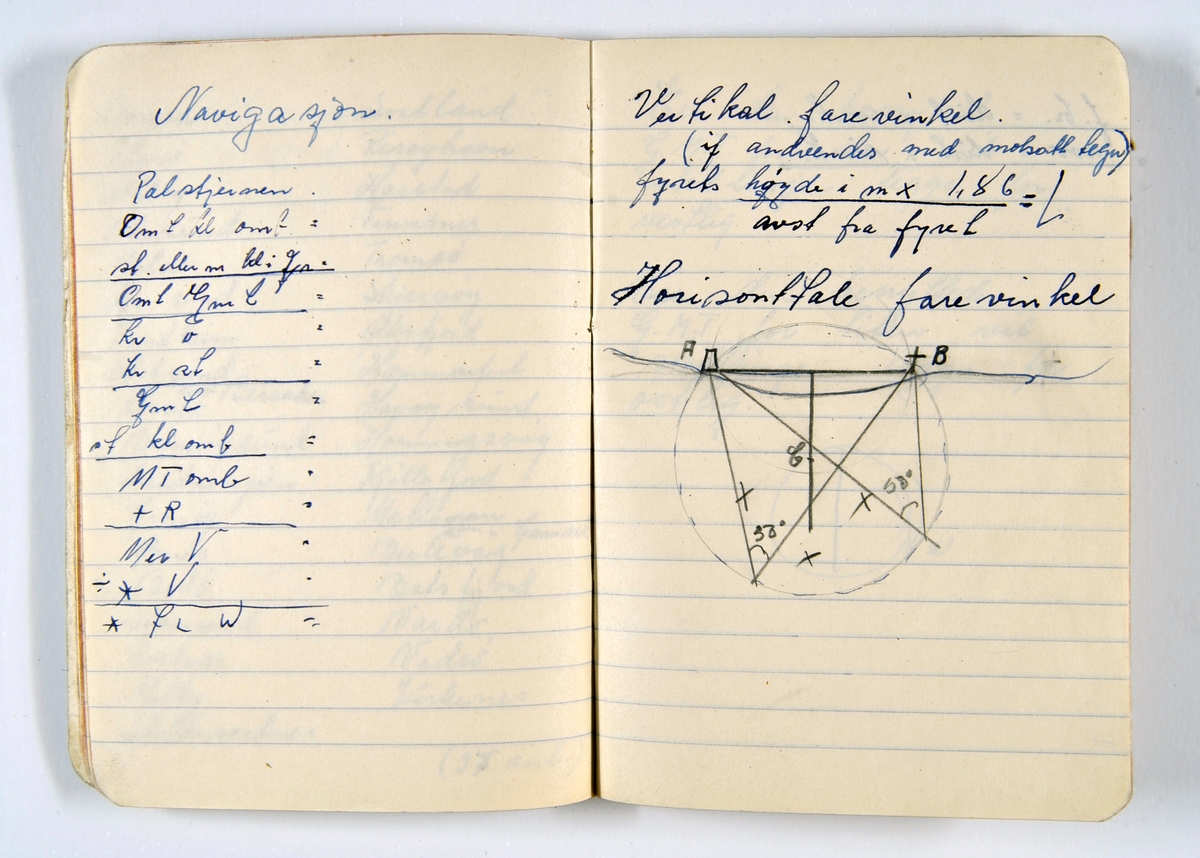 Navigasjon.
Polstjernen.
Omt kl omb =
st. eller m kl i Gr =
Omt Gmt =
kr ō =
kr st =
Gmt =
st kl omb =
MT omb =
+ R =
Mer V =
÷ * V =
* T L W =
Vertikal. farevinkel.
(if andvendes med motsatt tegn)
fyrets høyde i m x 1,86 =
avst fra fyret
Horisonttale farevinkel
A B
53°
53°